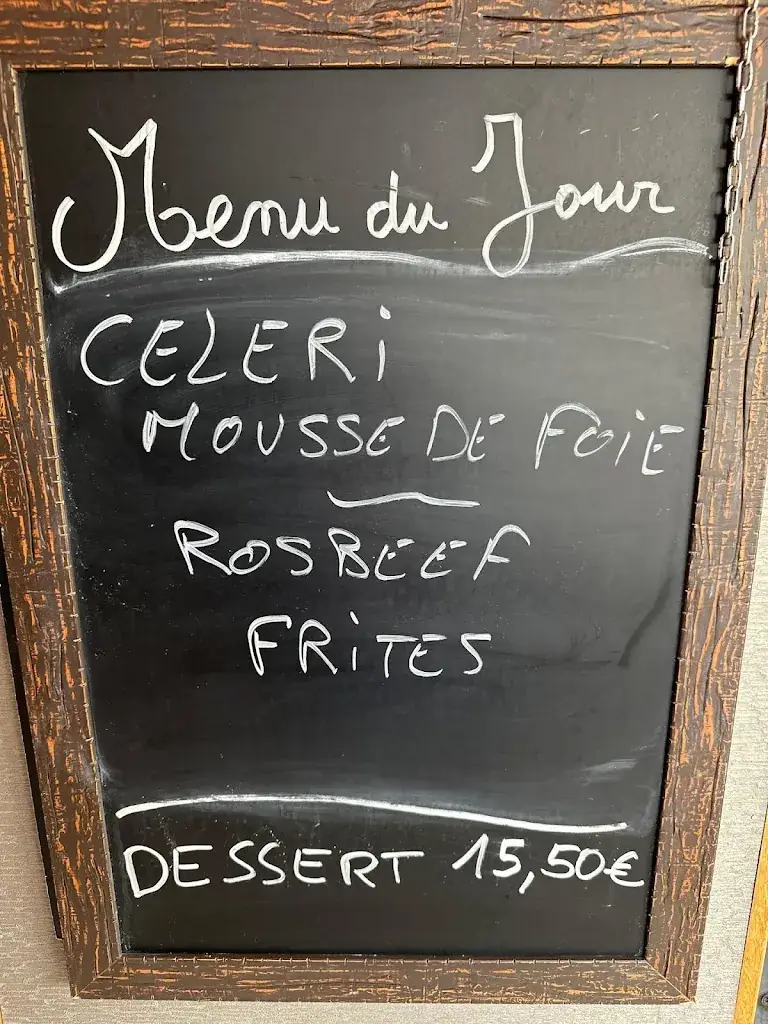 Menu du Jour
CELERi
MOUSSE DE FOiE
ROSBEEF
FRiTES
DESSERT 15,50€